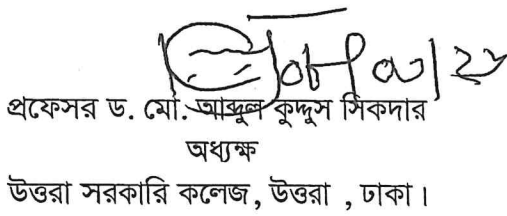 প্রফেসর ড. মো. আব্দুল কুদ্দুস সিকদার
অধ্যক্ষ
উত্তরা সরকারি কলেজ, উত্তরা , ঢাকা।